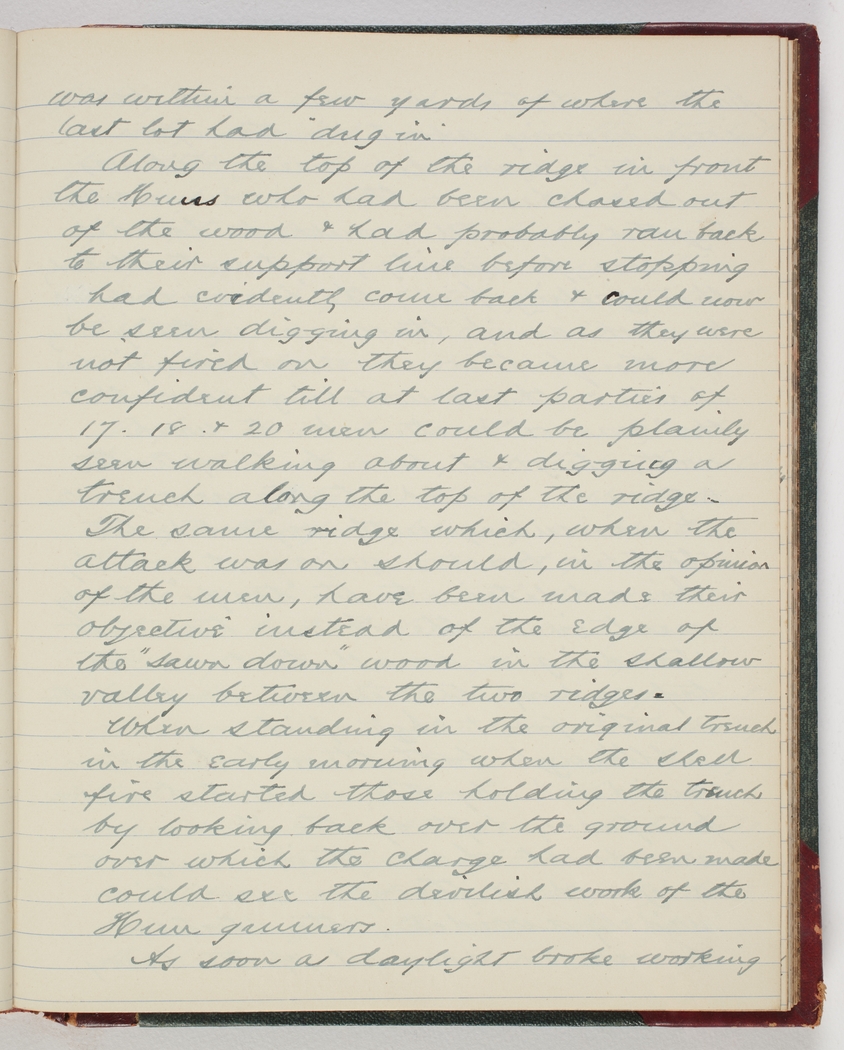 was within a few yards of where the
last lot had "dug in"
Along the top of the ridge in front
the Huns who had been chased out
of the wood & had probably ran back
to their support line before stopping
had evidently come back & could now
be seen digging in, and as they were
not fired on they became more
confident till at last parties of
17. 18. & 20 men could be plainly
seen walking about & digging a
trench along the top of the ridge.
The same ridge which, when the
attack was on should, in the opinion
of the men, have been made their
objective instead of the Edge of
the "sawn down" wood in the shallow
valley between the two ridges.
When standing in the original trench
in the Early morning when the shell
fire started those holding the trench
by looking back over the ground
over which the charge had been made
could see the devilish work of the
Hun gunners.
As soon as daylight broke working